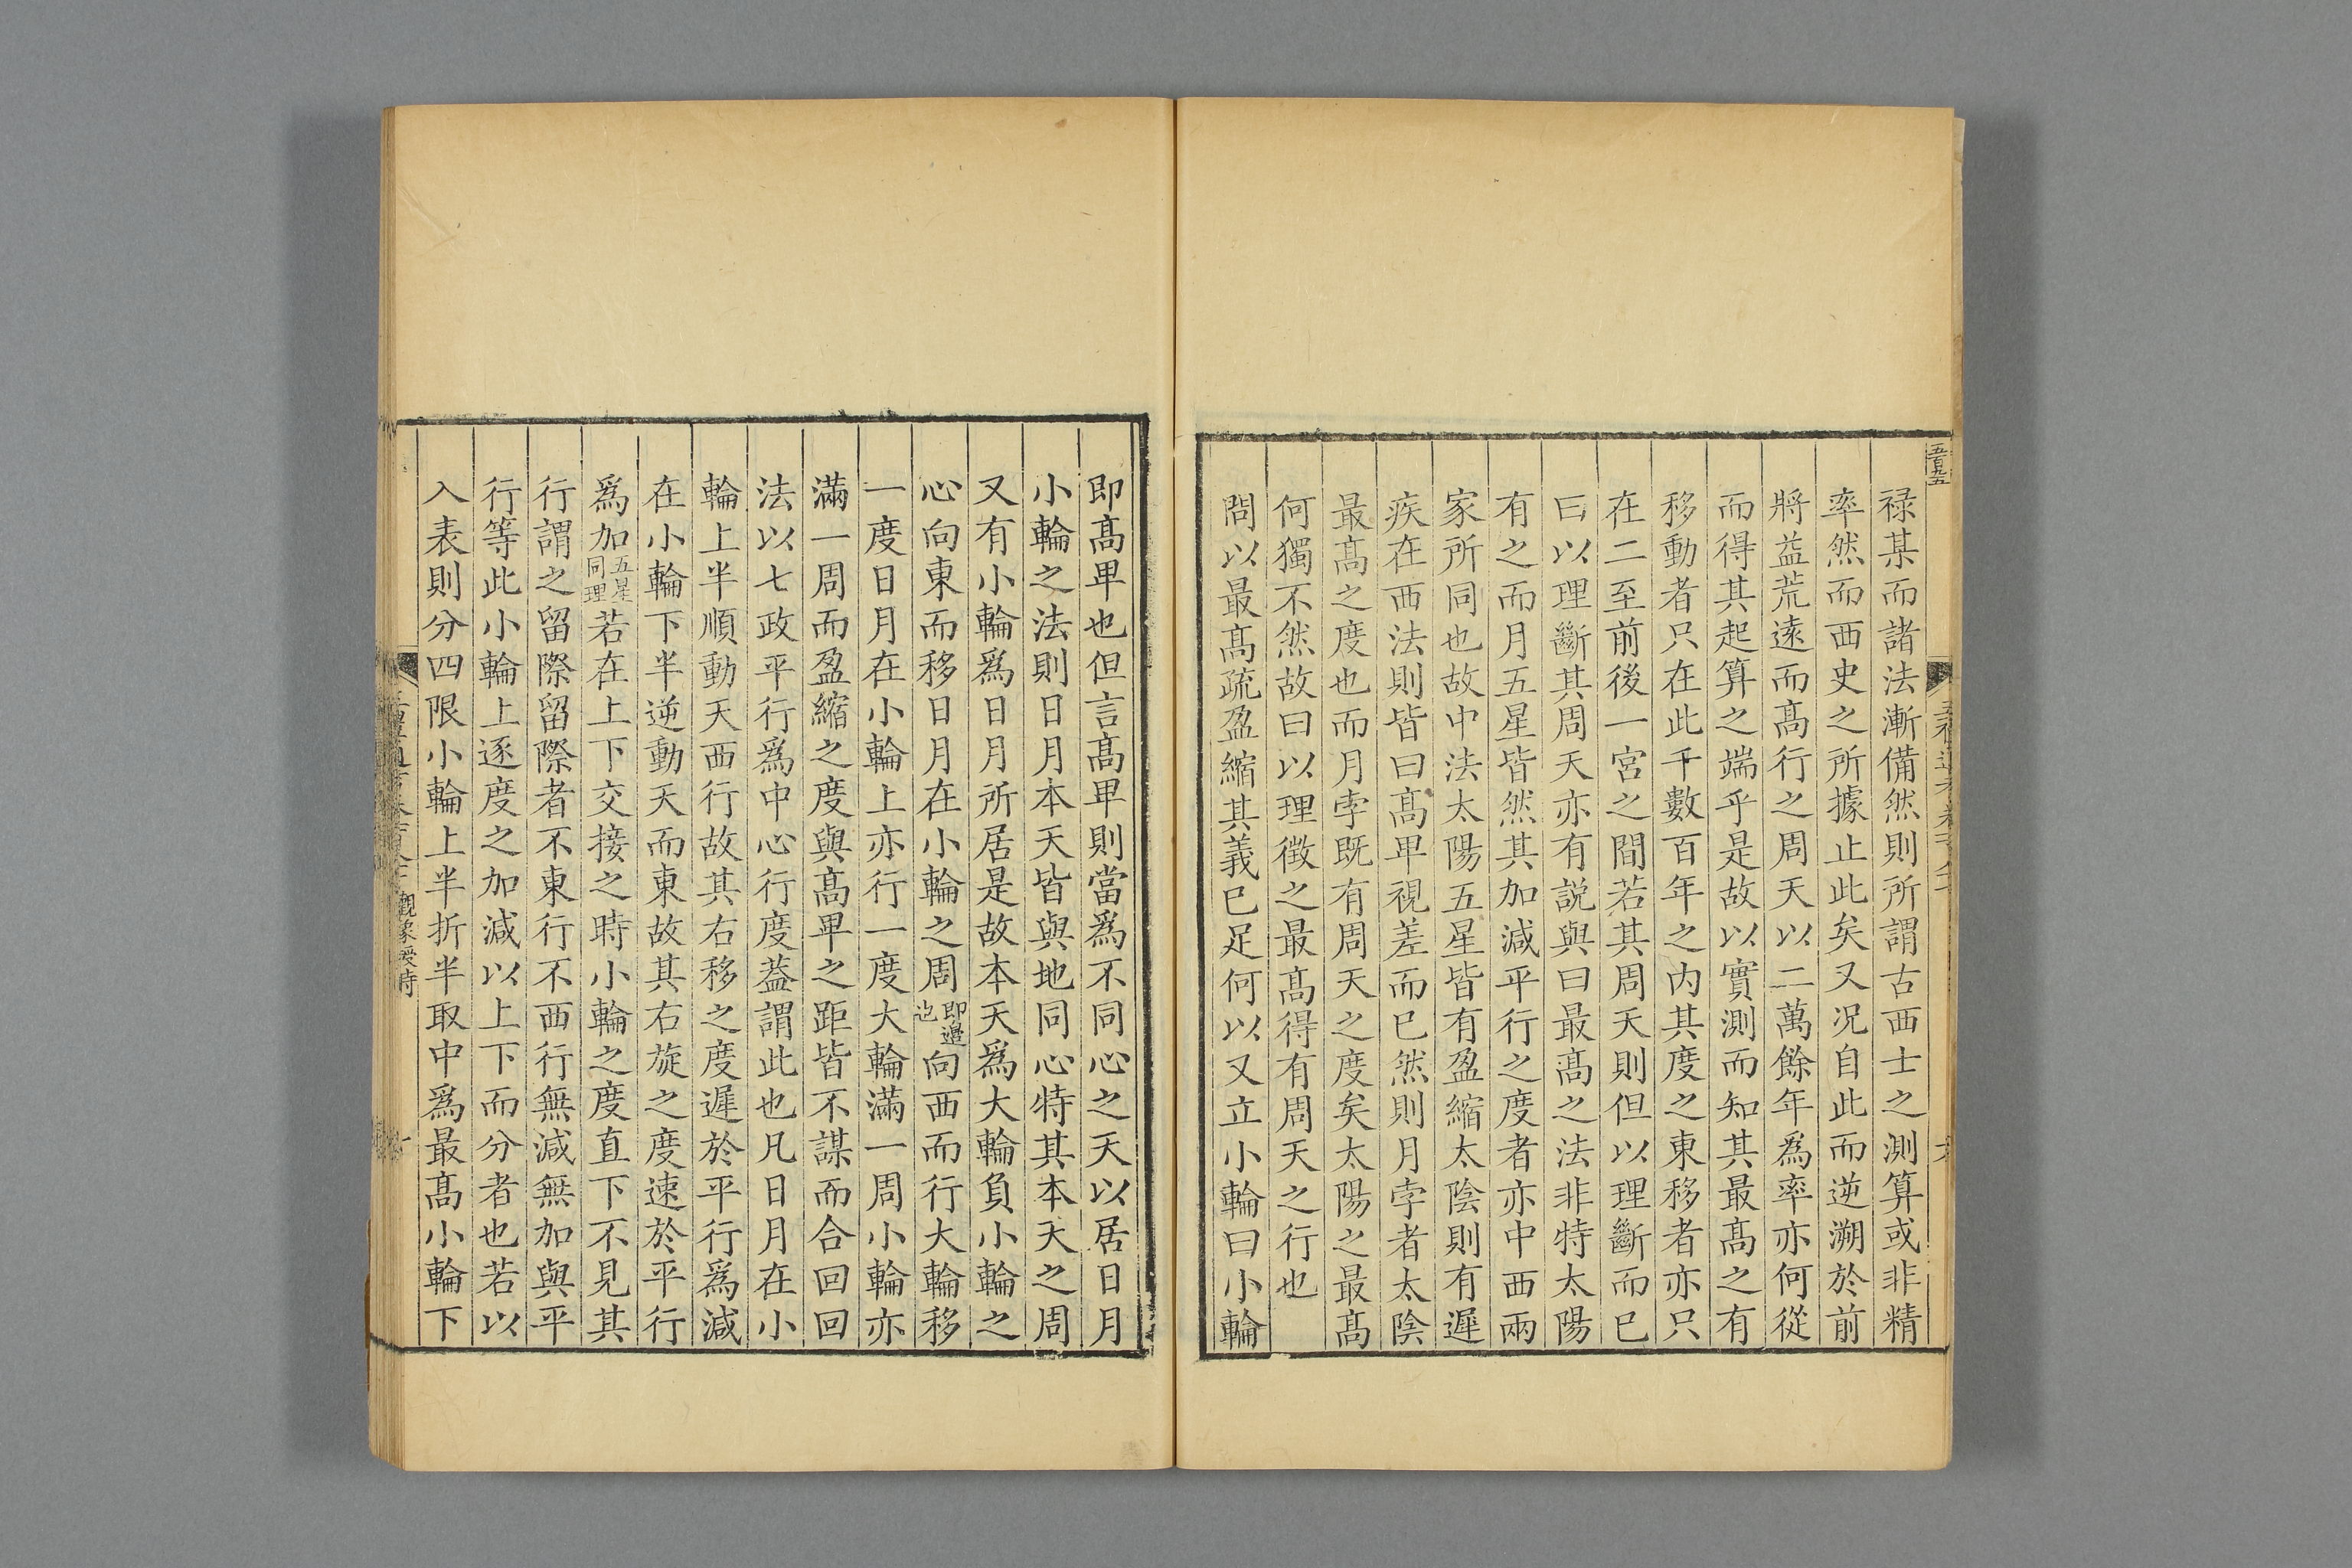 五百九五
禄某而諸法漸備然則所謂古西士之測算或非精
率然而西史之所據止此矣又况自此而逆溯於前
將益荒遠而髙行之周天以二萬餘年爲率亦何從
而得其起算之端乎是故以實測而知其最髙之有
移動者只在此千數百年之内其度之東移者亦只
在二至前後一宮之間若其周天則但以理斷而已
曰以理斷其周天亦有説與曰最髙之法非特太陽
有之而月五星皆然其加減平行之度者亦中西兩
家所同也故中法太陽五星皆有盈縮太陰則有遲
疾在西法則皆曰髙卑視差而已然則月孛者太陰
最髙之度也而月孛既有周天之度矣太陽之最髙
何獨不然故曰以理徴之最髙得有周天之行也
問以最髙疏盈縮其義已足何以又立小輪曰小輪
即髙卑也但言髙卑則當爲不同心之天以居日月
小輪之法則日月本天皆與地同心特其本天之周
又有小輪爲日月所居是故本天爲大輪負小輪之
心向東而移日月在小輪之周即邉也向西而行大輪移
一度日月在小輪上亦行一度大輪滿一周小輪亦
滿一周而盈縮之度與髙卑之距皆不謀而合回回
法以七政平行爲中心行度葢謂此也凡日月在小
輪上半順動天西行故其右移之度遲於平行爲減
在小輪下半逆動天而東故其右旋之度速於平行
爲加五星同理若在上下交接之時小輪之度直下不見其
行謂之留際留際者不東行不西行無減無加與平
行等此小輪上逐度之加減以上下而分者也若以
入表則分四限小輪上半折半取中爲最髙小輪下
觀象授時